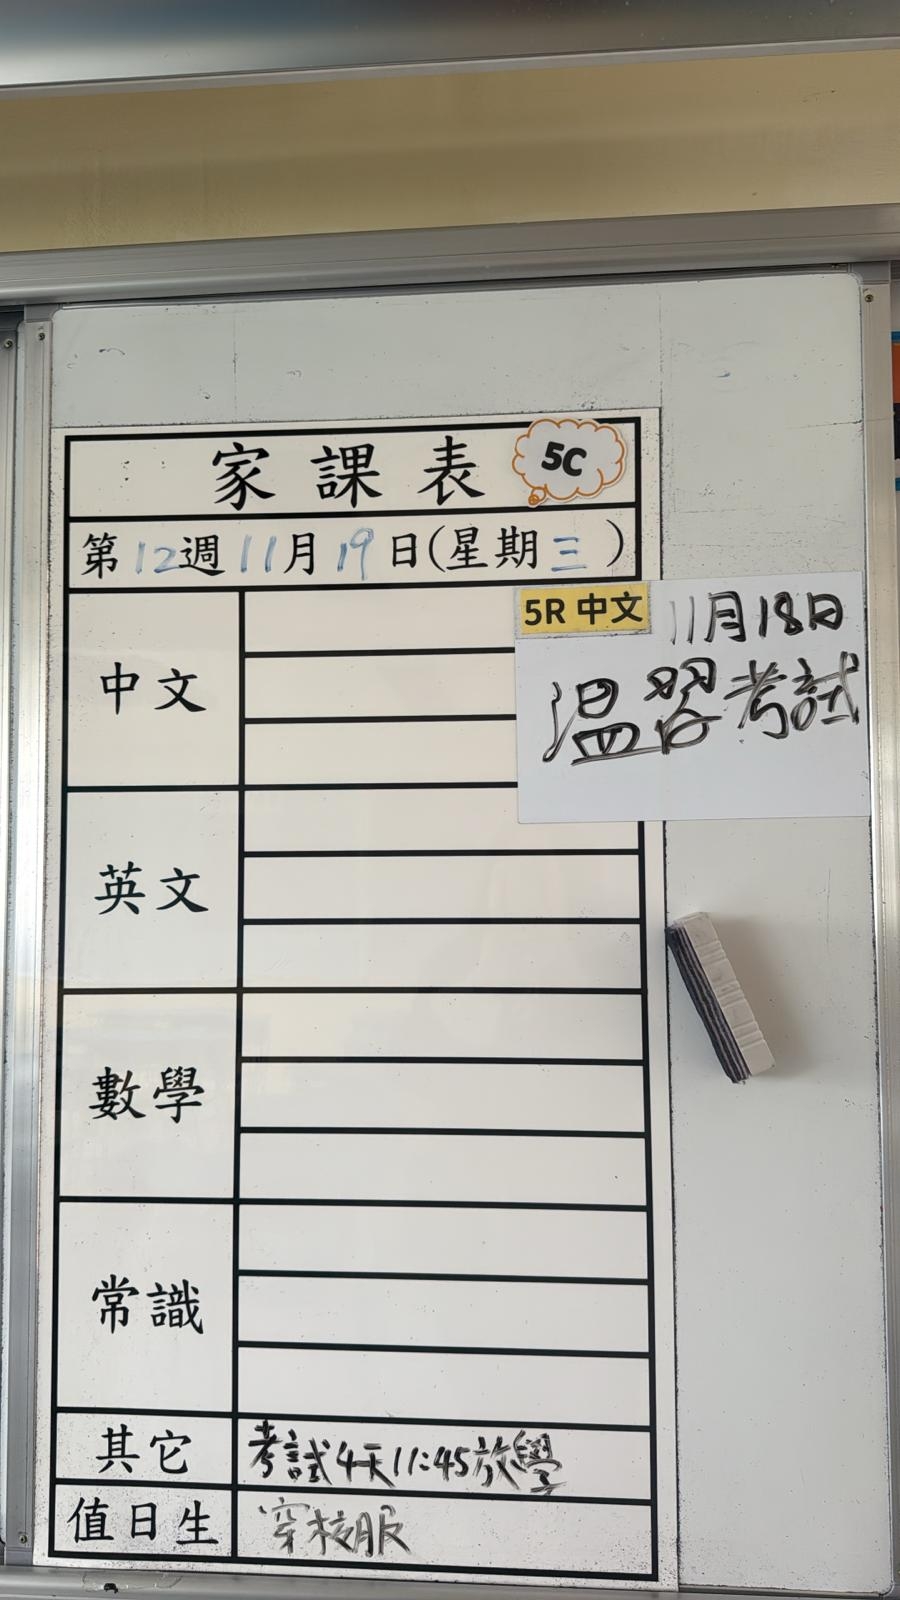 家課表 5C
第12週11月19日(星期三)
5R 中文 11月18日
温習考試
中文
英文
數學
常識
其它 考試4天11:45放學
值日生 穿校服